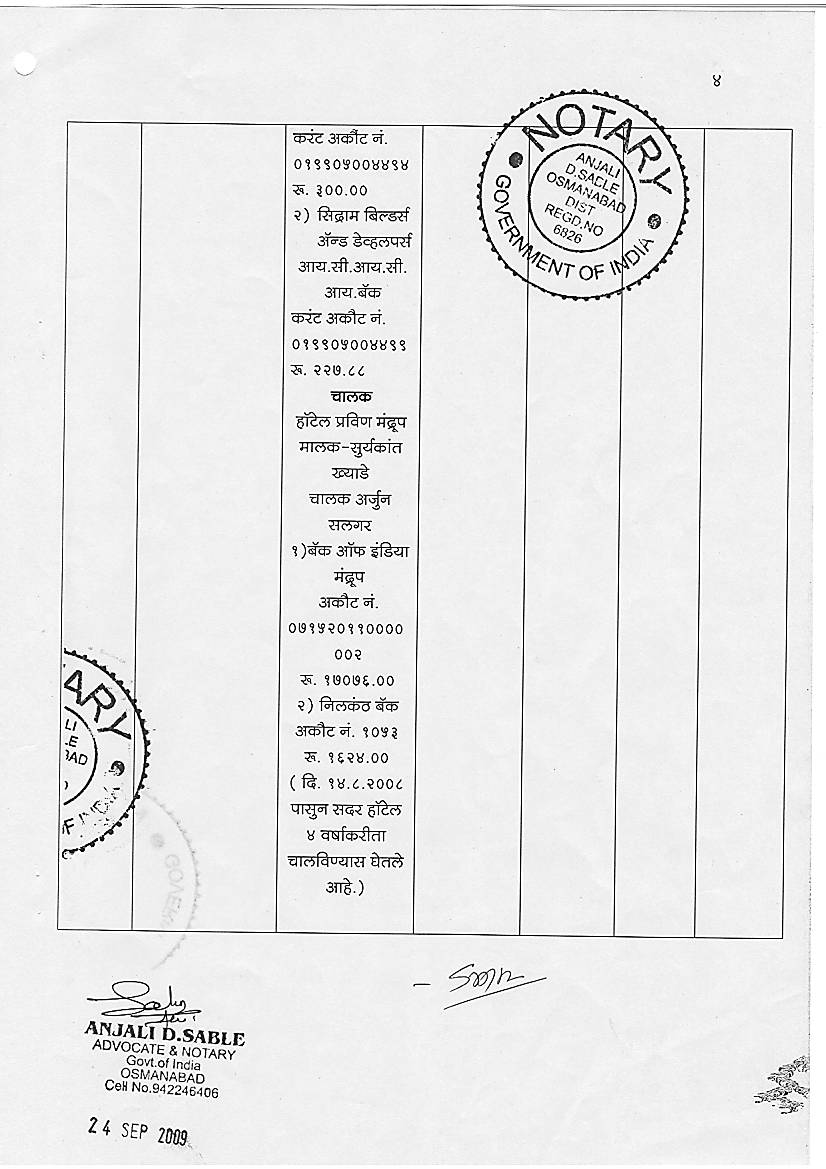 ४
करंट अकौंट नं.
०१९९०५००४४९४
रू. ३००.००
२) सिद्राम बिल्डर्स
ॲन्ड डेव्हलपर्स
आय.सी.आय.सी.
आय.बॅक
करंट अकौट नं.
०१९९०५००४४९९
रू. २२७.८८
चालक
हॉटेल प्रविण मंद्रूप
मालक-सुर्यकांत
ख्याडे
चालक अर्जुन
सलगर
१)बॅक ऑफ इंडिया
मंद्रूप
अकौट नं.
०७१५२०११००००
००२
रू. १७०७६.००
२) निलकंठ बॅक
अकौट नं. १०५३
रू. १६२४.००
( दि. १४.८.२००८
पासुन सदर हॉटेल
४ वर्षाकरीता
चालविण्यास घेतले
आहे.)
NOTARY
GOVERNMENT OF INDIA
ANJALI
D.SABLE
OSMANABAD
DIST
REGD.NO
6826
ARY
LI
LE
BAD
OF INDIA
GOVER
ANJALI D.SABLE
ADVOCATE & NOTARY
Govt.of India
OSMANABAD
Cell No.942246406
24 SEP 2009